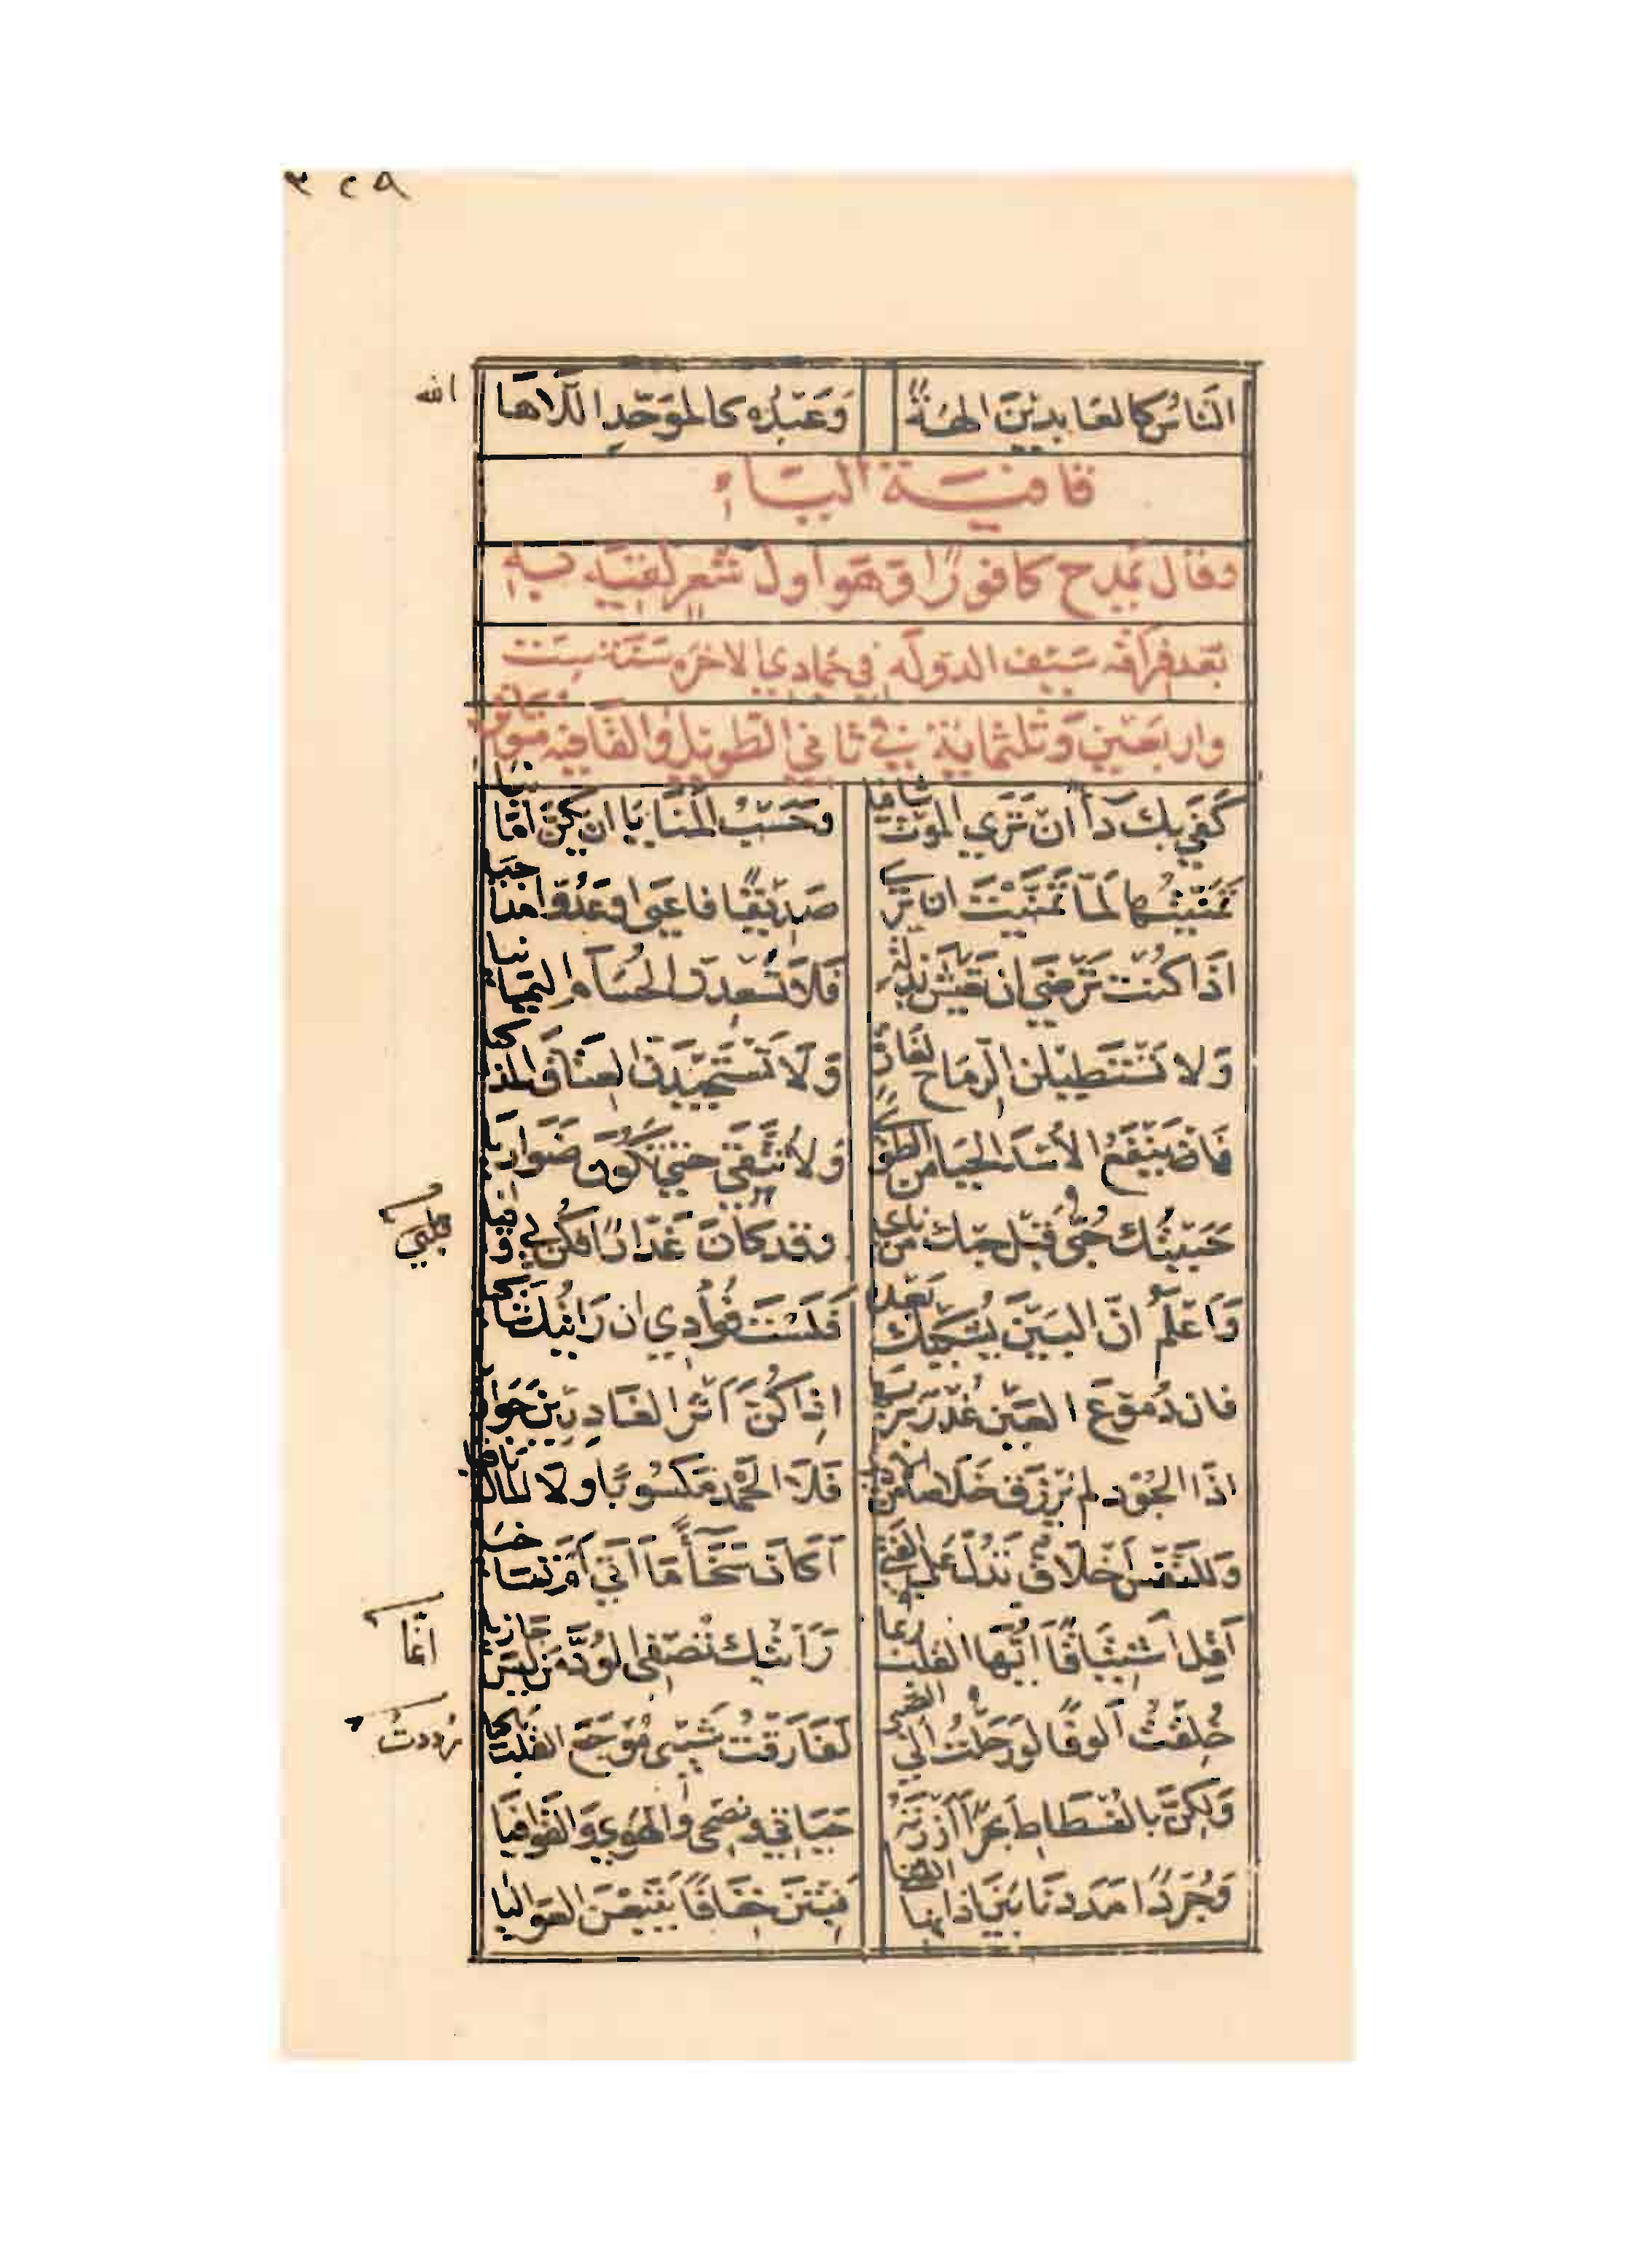 ٣٢٨
الناسُ كالعَابدِينَ الهَةً وَعَبْدُه كالموَحّدِ اللاها
الله
قافية الياء
وقال يمدح كافورًا وهو أول شعر لقيه به
بعد فراقه سيف الدوله في جمادي الاخره سنة ست
واربعين وثلثماية في ثاني الطويل والقافيه متواتر
كَفي بكَ دَأ ان تَري الموتَ شافيا وحَسْبُ المنَايَا ان يكنَّ امَانيا
تمنيتُها لمّا تمنيتَ ان تري صَدِيقًا فاعيى او عَدُوّا مُداجيا
اذا كنتَ ترضي ان تعيش بذلةٍ فلا تستعدنّ الحسَام اليمانيا
ولا تستطيلن الرماح لغارةٍ ولا تستجيدن العتاق المذاكيا
فما ينفع الأسد الحيا من الطوي ولا تُتّقي حتي تكون ضواريا
حَبيتُك قلبي قبل حبك من ناي وقد كان غدارًا فكن لي وافيا
قلبي
وَاعلمُ انّ البين يُشكيك بعده فلستَ فوأدي ان رَايتك شاكيا
فان دُموعَ العين غُدرٌ بربها اذا كنّ أثر الغادرين جواريا
اذا الجود لم يرزق خلاصا من الاذي فلا الحمد مكسوبًا ولا المال باقيا
وَللنفس اخلاق تدل علي الفتي أكان سَخَاءً ما أتي أم تساخيا
أقِل اشتياقًا أيّها القلب ربما رَأيتك تُصفي الودّ من ليس جازيا
انما
خُلِقتُ ألوفًا لو رَحلتُ الي الصبي لفارقت شيبي مُوجَع القلب باكيا
رددتُ
وَلكِنّ بالفسطاطِ بحرًا أزَرتُهُ حَياتي ونصحي والهوي وَالقوافيَا
وَجُردًا مَددنا بَين اذانها القنا فبتن خِفَافًا يَتبعنَ العَواليا